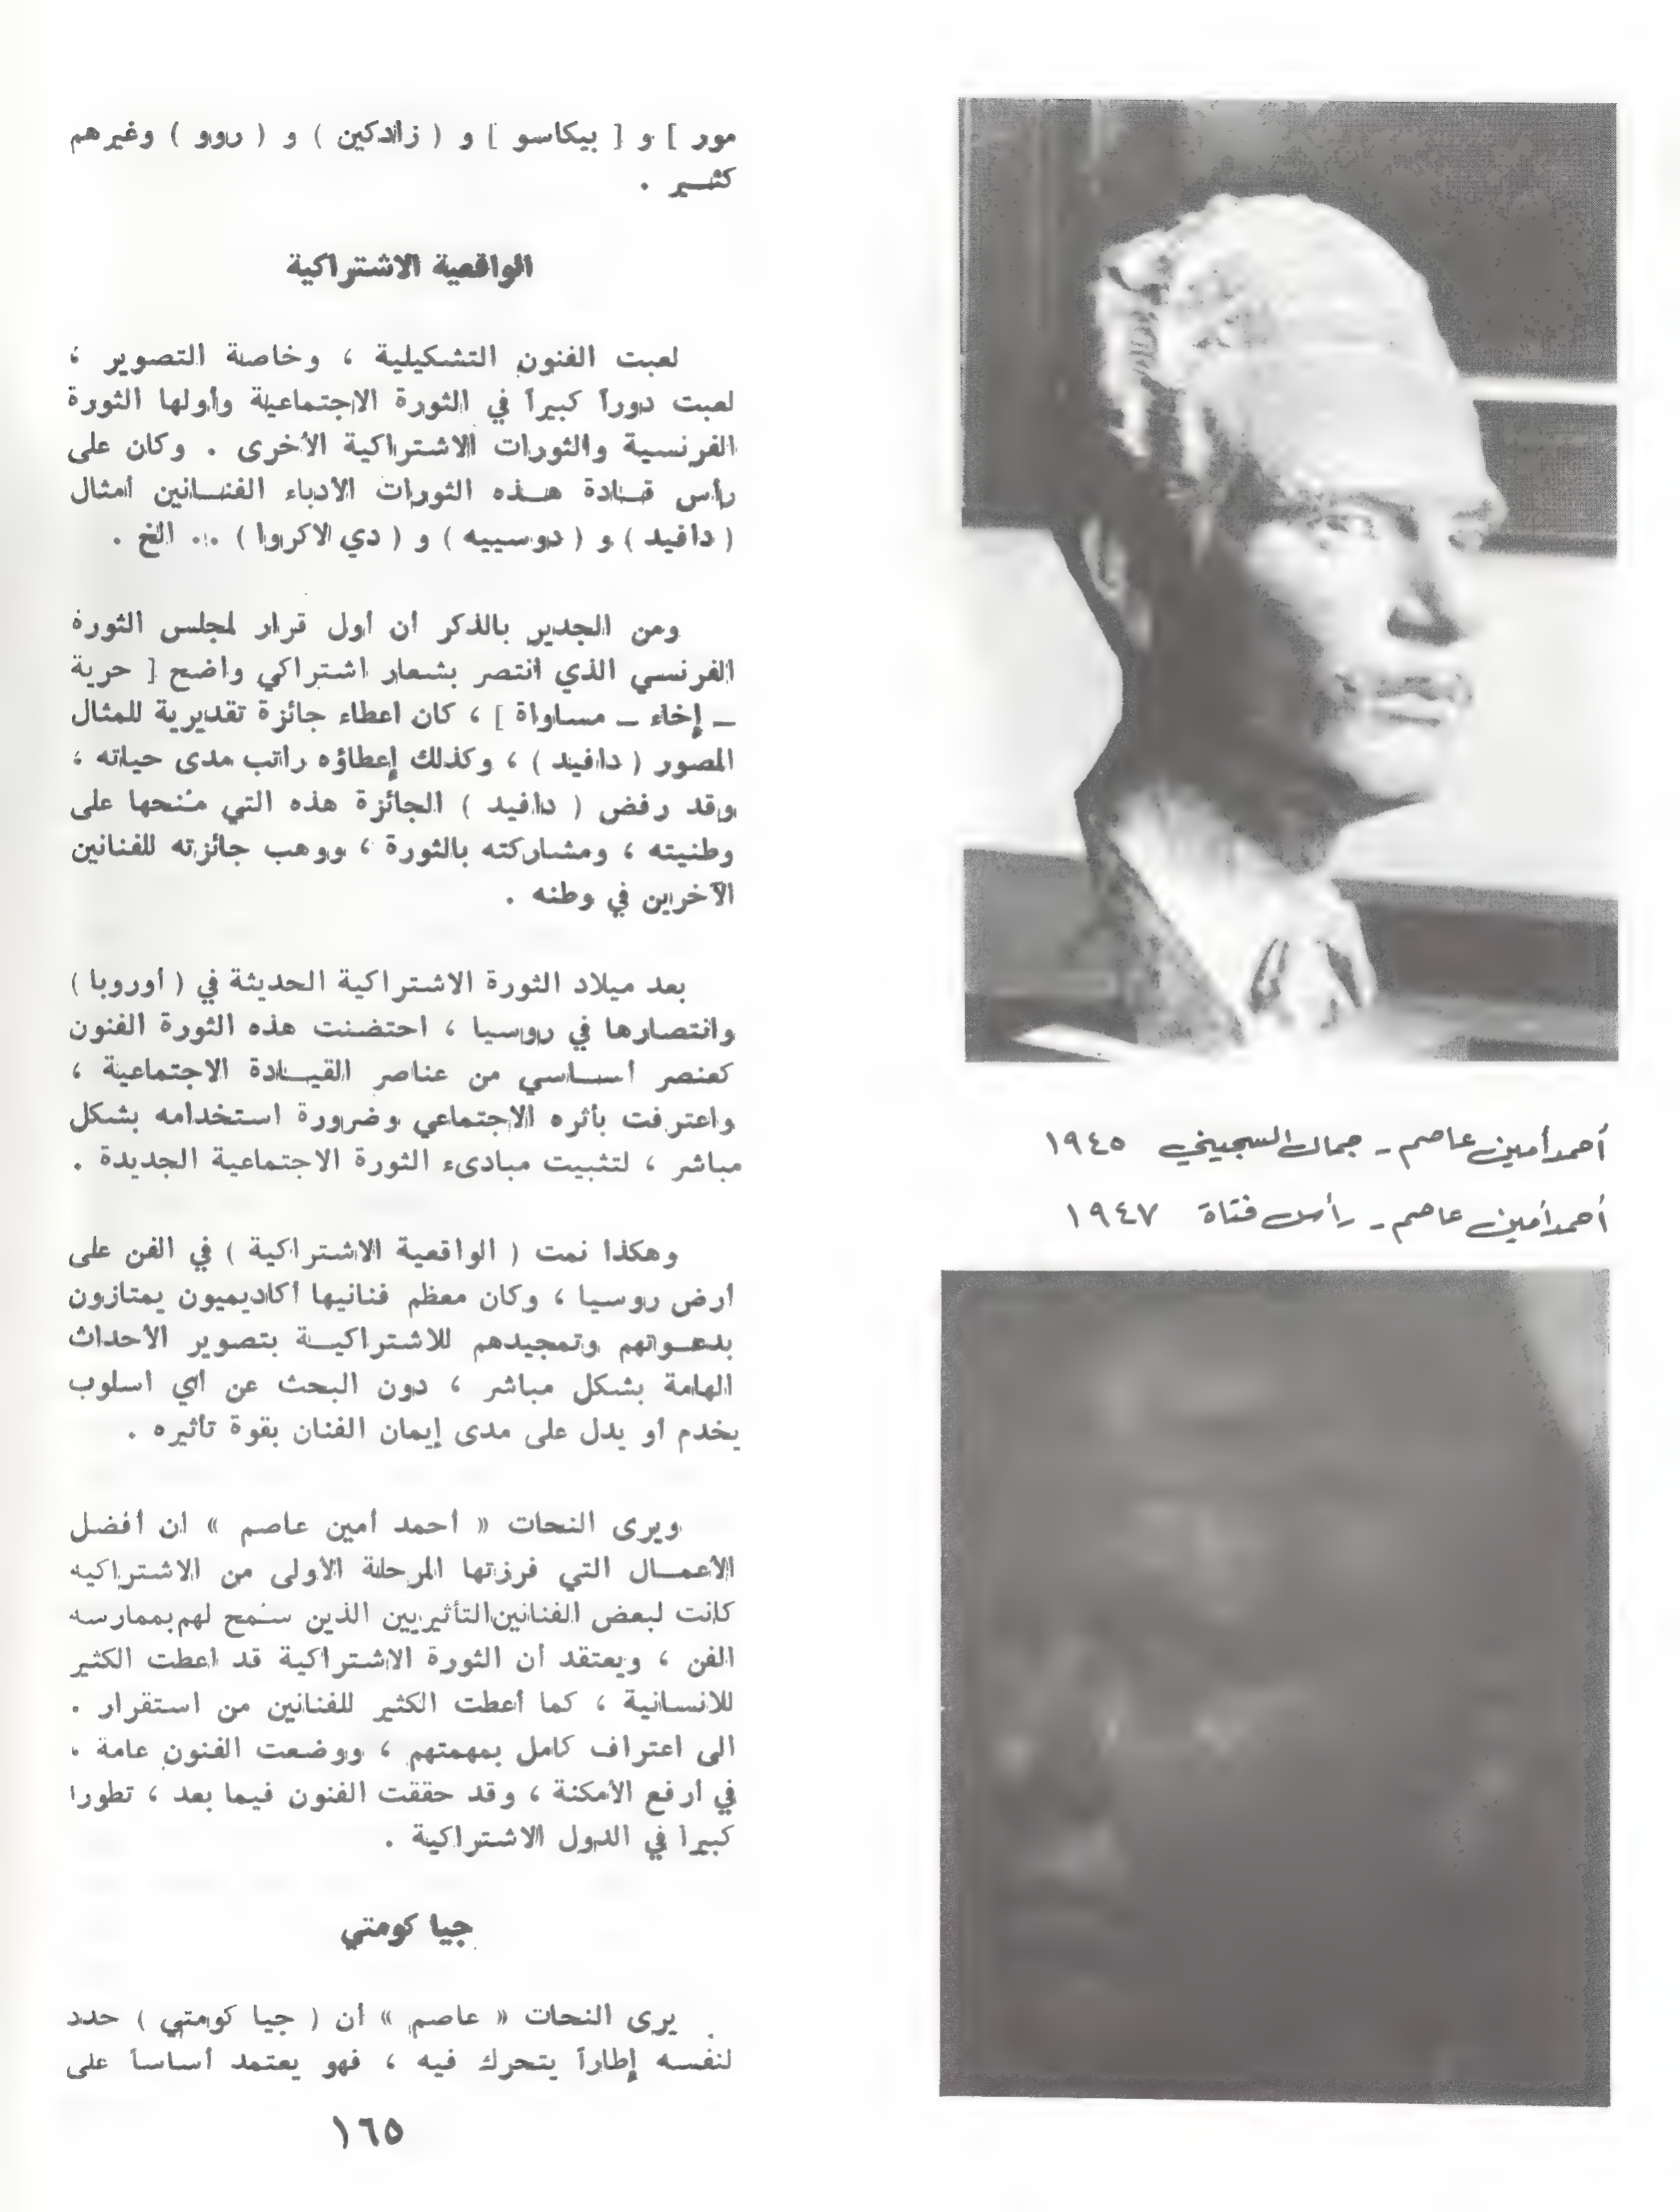 أحمد أمين عاصم - جمال السجيني ١٩٤٥
أحمد أمين عاصم - رأس فتاة ١٩٤٧
مور ] و [ بيكاسو ] و ( زادكين ) و ( روو ) وغيرهم
كثــير .
الواقعية الاشتراكية
لعبت الفنون التشكيلية ، وخاصة التصوير ،
لعبت دوراً كبيراً في الثورة الاجتماعية وأولها الثورة
الفرنسية والثورات الاشتراكية الأخرى . وكان على
رأس قــادة هــذه الثورات الأدباء الفنــانين أمثال
( دافيد ) و ( دوسييه ) و ( دي لاكروا ) .. الخ .
ومن الجدير بالذكر أن أول قرار لمجلس الثورة
الفرنسي الذي انتصر بشعار اشتراكي واضح [ حرية
ـ إخاء ـ مساواة ] ، كان اعطاء جائزة تقديرية للمثال
المصور ( دافيد ) ، وكذلك إعطاؤه راتب مدى حياته ،
وقد رفض ( دافيد ) الجائزة هذه التي مُنحها على
وطنيته ، ومشاركته بالثورة ، ووهب جائزته للفنانين
الآخرين في وطنه .
بعد ميلاد الثورة الاشتراكية الحديثة في ( أوروبا )
وانتصارها في روسيا ، احتضنت هذه الثورة الفنون
كعنصر أســاسي من عناصر القيــادة الاجتماعية ،
واعترفت بأثره الاجتماعي وضرورة استخدامه بشكل
مباشر ، لتثبيت مبادىء الثورة الاجتماعية الجديدة .
وهكذا نمت ( الواقعية الاشتراكية ) في الفن على
أرض روسيا ، وكان معظم فنانيها أكاديميون يمتازون
بدعــواتهم وتمجيدهم للاشتراكيــة بتصوير الأحداث
الهامة بشكل مباشر ، دون البحث عن أي اسلوب
يخدم أو يدل على مدى إيمان الفنان بقوة تأثيره .
ويرى النحات « أحمد أمين عاصم » أن أفضل
الأعمــال التي فرزتها المرحلة الأولى من الاشتراكيه
كانت لبعض الفنانين التأثيريين الذين سُمح لهم بممارسه
الفن ، ويعتقد أن الثورة الاشتراكية قد اعطت الكثير
للانسانية ، كما أعطت الكثير للفنانين من استقرار .
الى اعتراف كامل بمهمتهم ، ووضعت الفنون عامة ،
في أرفع الأمكنة ، وقد حققت الفنون فيما بعد ، تطورا
كبيراً في الدول الاشتراكية .
جيا كومتي
يرى النحات « عاصم » أن ( جيا كومتي ) حدد
لنفسه إطاراً يتحرك فيه ، فهو يعتمد أساساً على
١٦٥